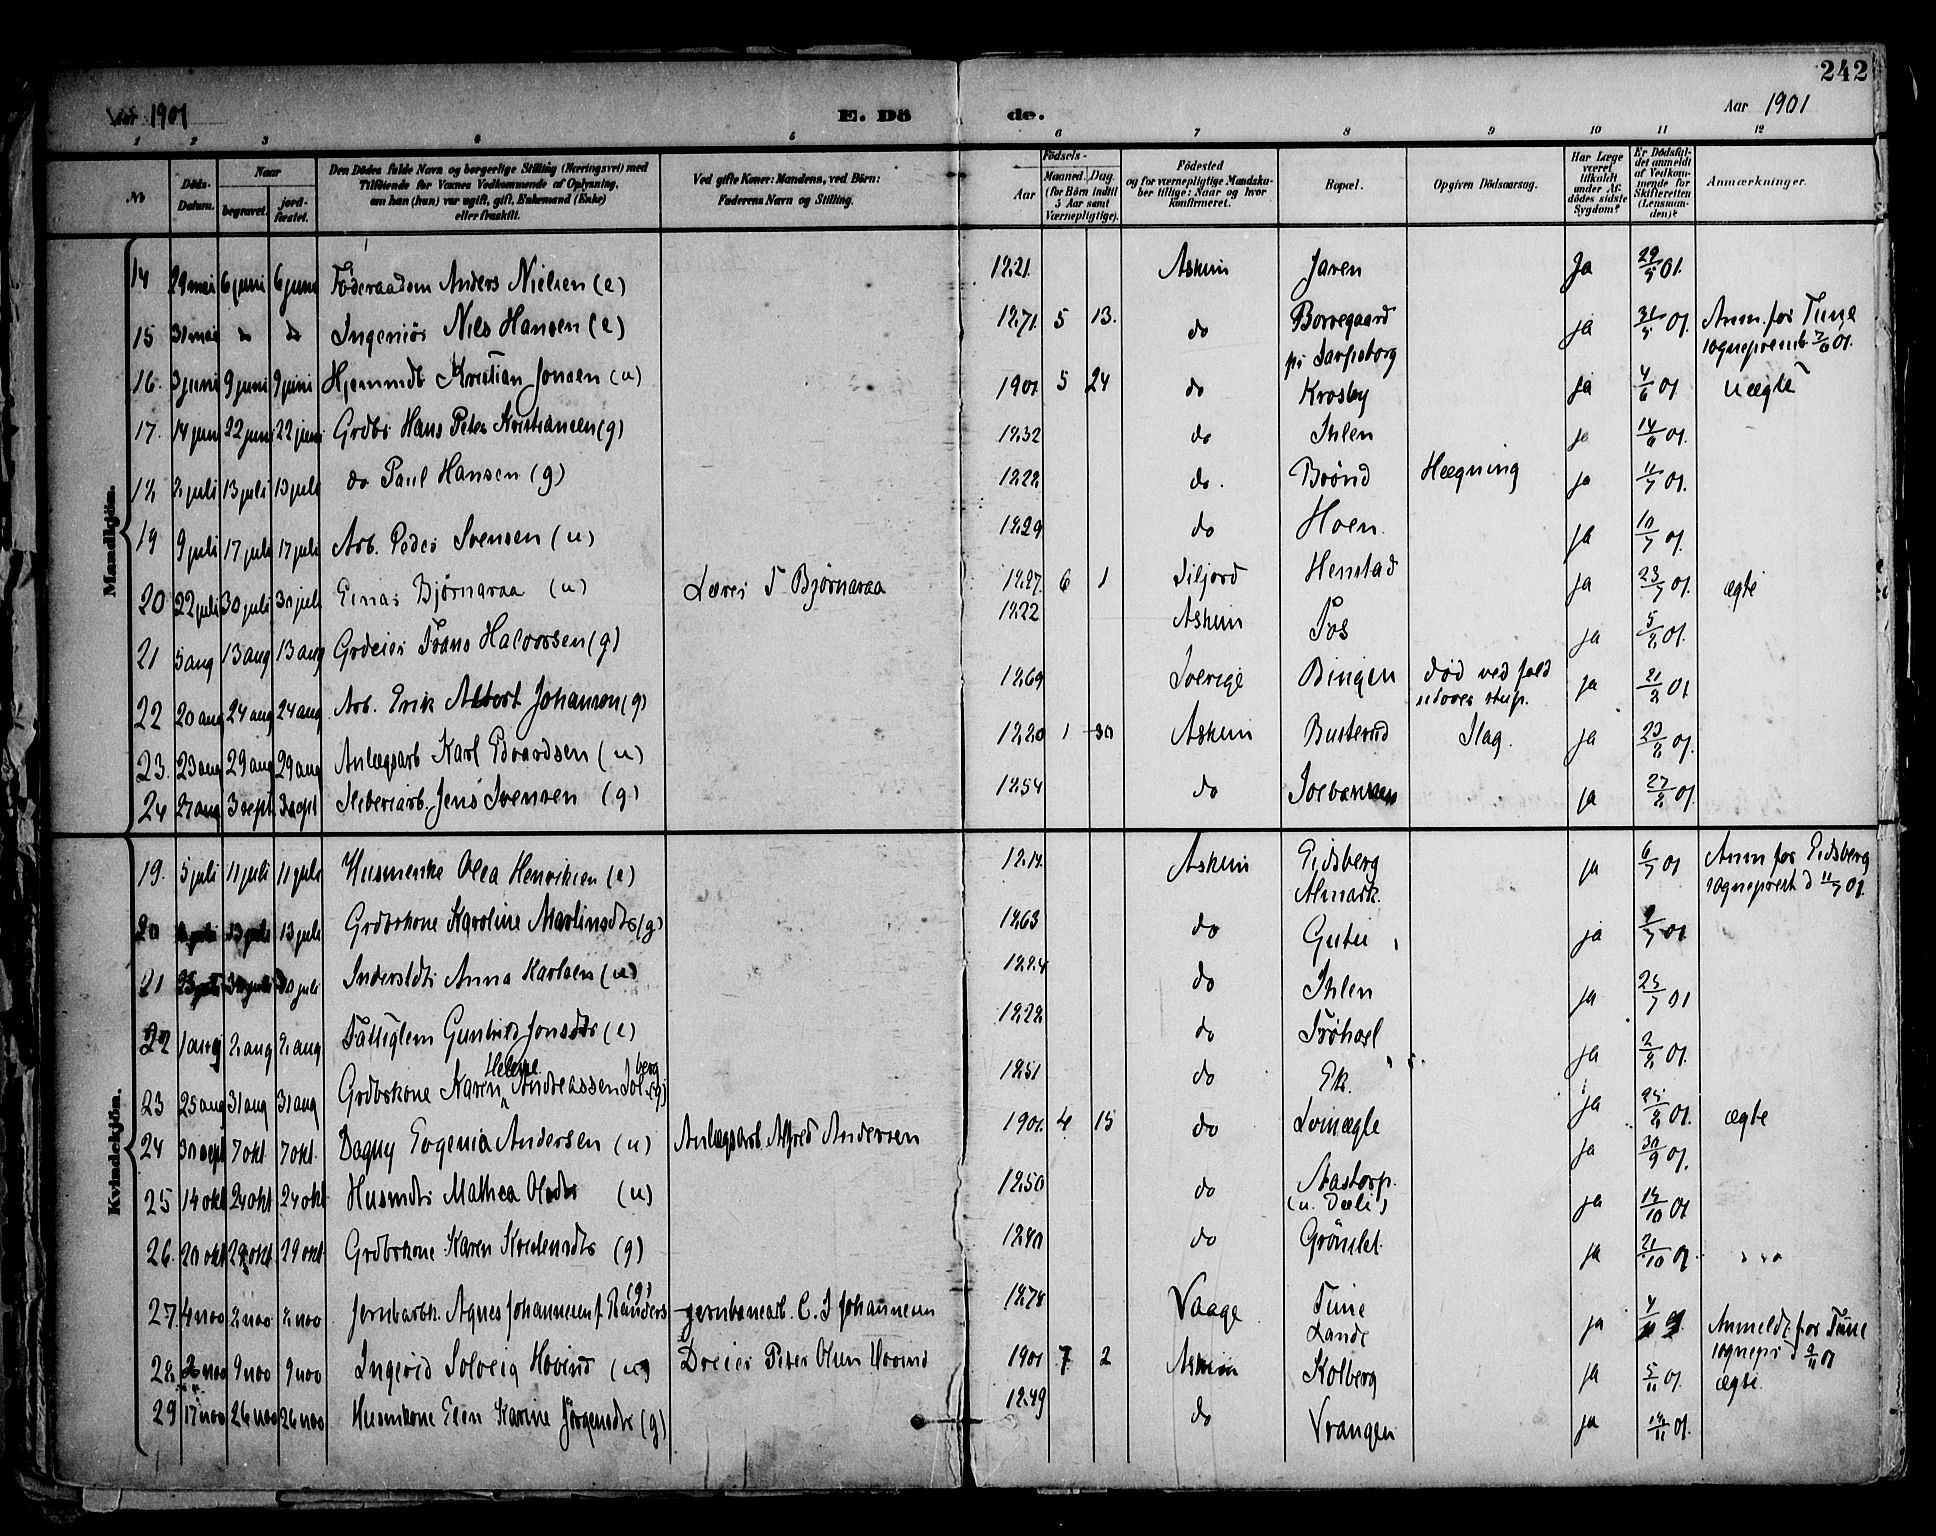 242
Aar 1901 E. Dö de. Aar 1901
1 2 3 4 5 6 7 8 9 10 11 12
No
Döds-Datum.
Naar
begravet.
jordfæstet.
Den Dödes fulde Navn og borgerlige Stilling (Næringsvei) med
Tilföiende for Voxnes Vedkommende af Oplysning,
om han (hun) var ugift, gift, Enkemand (Enke)
eller fraskilt.
Ved gifte Koner: Mandens, ved Börn:
Faderens Navn og Stilling.
Födsels-
Aar
Maaned. Dag.
(for Börn indtil
5 Aar samt
Værnepligtige).
Födested
og for værnepligtige Mandskaber tillige: Naar og hvor
konfirmeret.
Bopæl.
Opgiven Dödsaarsag.
Har Læge
været
tilkaldt
under Afdödes sidste
Sygdom?
Er Dödsfaldet anmeldt
af Vedkommende for
Skifteretten
(Lensmanden)?
Anmærkninger.
Mandkjön.
14 29 mai 6 juni 6 juni Föderaadsm Anders Nielsen (e) 1821 Askim Jaren Ja 29/5 01.
15 31 mai do do Ingeniör Nils Hansen (e) 1871. 5 13. do Borregaard pr Sarpsborg ja 31/5 01. Anm. for Tune sognepræst 3/6 01.
16. 3 juni 9 juni 9 juni Kristian Jonsen (u) 1901 5 24 do Krosby ja 4/6 01 uægte
17. 14 juni 22 juni 22 juni Grdbr Hans Peter Kristiansen (g) 1832 do Ihlen ja 14/6 01.
18 juli 13 juli 13 juli do Paul Hansen (g) 1828 do. Brönd Hægning ja 01.
19 9 juli 17 juli 17 juli Arb. Peder Svensen (u) 1829 do Hoen. ja 10/7 01.
20 22 juli 30 juli 30 juli Einar Bjørnaraa (u) Lærer T Bjørnaraa 6 1 Siljord Henstad ja 23/7 01. ægte
21 5 aug 13 aug 13 aug Grdeier Frans Halvorsen (g) 1822 Askim Fos ja 5/8 01.
22 20 aug 24 aug 24 aug Arb. Erik Albert Johansen (g) 1869 Sverige Bingen död ved fald udover stup. ja 21/8 01
23. 23 aug 29 aug 29 aug Anlægsarb Karl Edvardsen (u) 1880 1 30 Askim Busterud Slag. ja 23/8 01.
24 27 aug 3 sept 3 sept Sliberiarb. Jens Svensen (g) 1854 do ja 27/8 01.
Kvindekjön.
19. 5 juli 11 juli 11 juli Husmenke Olea Henriksen (e) 1814. Askim Eidsberg Almark. ja 6/7 01 Anm for Eidsberg sogneprest d 11/7 01.
20 13 juli 13 juli Grdbrkone Karoline Martinsdtr (g) 1863 do Gutu ja 01
21 30 juli 30 juli Inderstdtr Anna Karlsen (u) 1884 do Ihlen ja 25/7 01
22 1 aug 2 aug 2 aug Fattiglem Gunhild Jonsdtr (e) 1822 do Fröhoel ja 2/8 01.
23 25 aug 31 aug 31 aug Grdbrkone Karen Helene Andreassen Solberg (g) 1851 do Ek. ja 25/8 01.
24 30 sept 7 okt. 7 okt. Dagny Evgenia Andersen (u) Anlægsarb. Alfred Andersen 1901. 4 15 do ja 30/9 01. ægte
25 14 okt 24 okt 24 okt Husmdtr Mathea Olsdtr (u) 1850 do Aastorp. (u. Dæli) ja 01
26. 20 okt 29 okt 29 okt Grdbrkone Karen (g) 1840 do Grönslet. ja 21/10 01.
27. 4 nov nov nov Jernbarbk. Agnes Johannesen f. Randers (g) jernbanearb. C. J Johannesen 1878 Vaage Tune Lande ja Anmeldt for Tune sognepr d 01
28. 2 nov 9 nov 9 nov Ingerid Solveig Hovind (u) Dreier Peter Olsen Hovind 1901 7 2 Askim Kolberg ja 5/11 01. ægte.
29 17 nov 26 nov 26 nov Husmkone Elen Karine Jörgensdtr (g) 1849 do Vrangen ja 18/11 01.